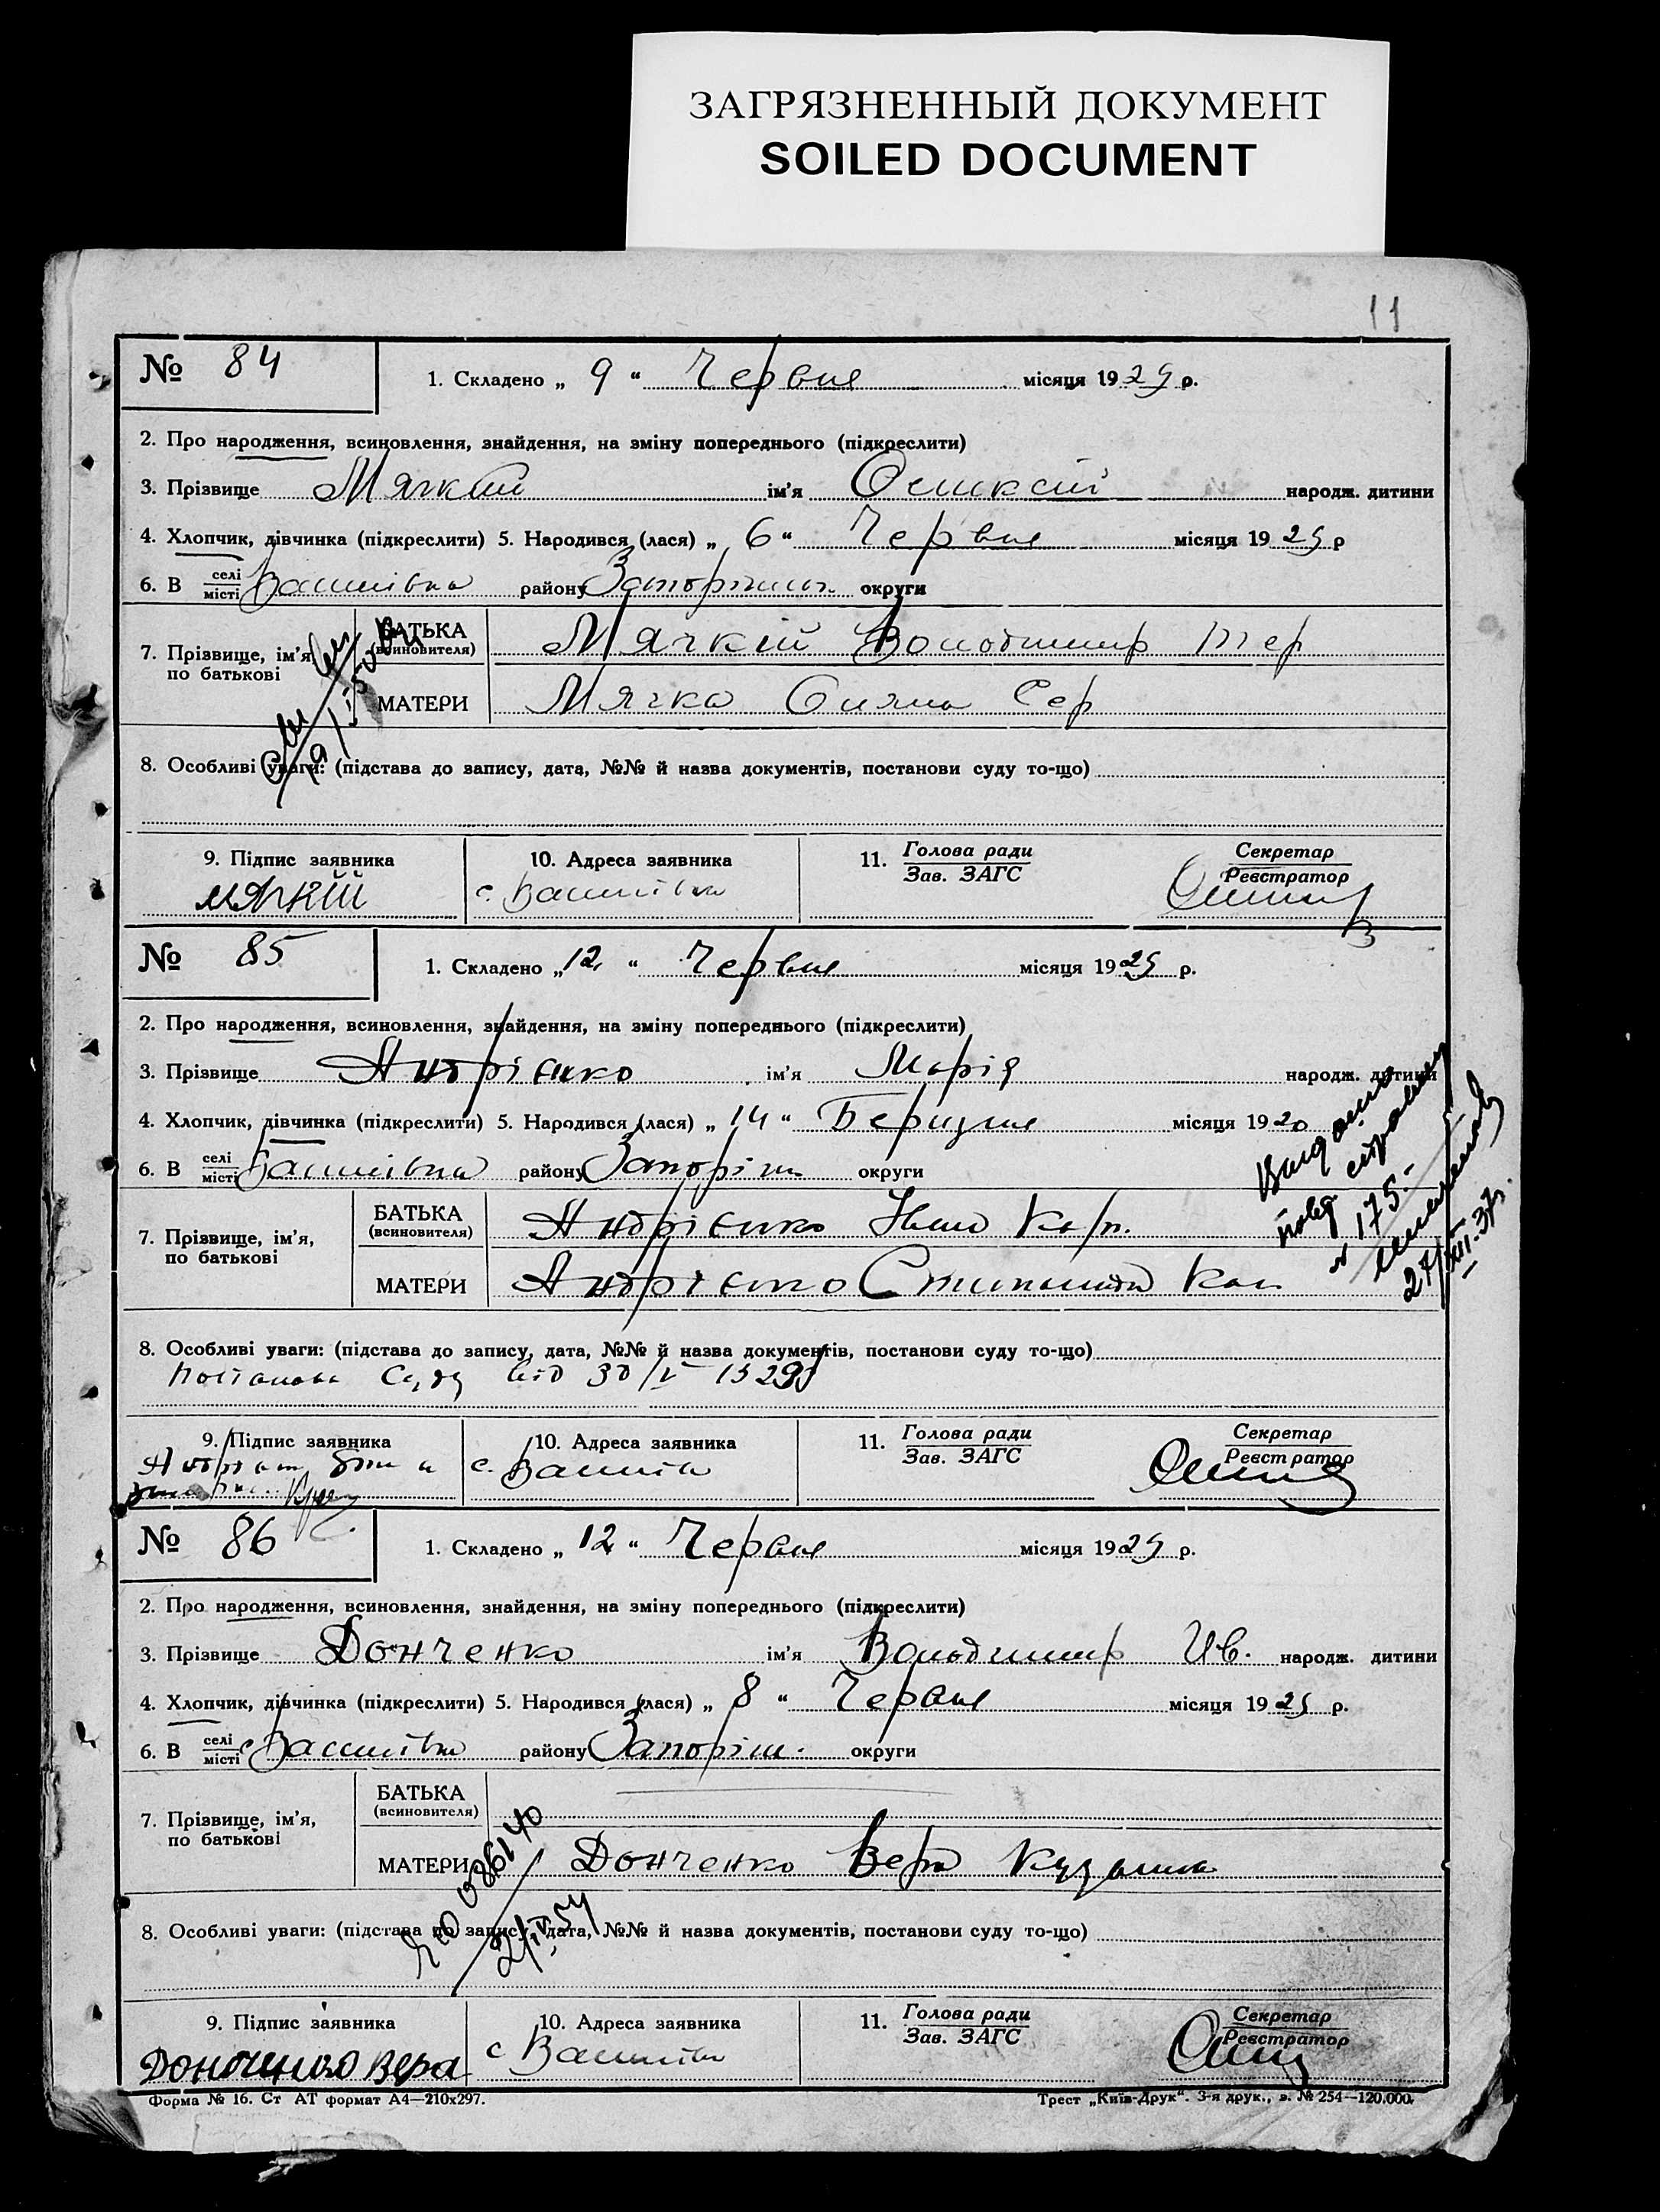 ЗАГРЯЗНЕННЫЙ ДОКУМЕНТ
SOILED DOCUMENT
11
№ 84
1. Складено „ 9 “ Червня місяця 1929 р.
2. Про народження, всиновлення, знайдення, на зміну попереднього (підкреслити)
3. Прізвище Мячкий ім'я Оликсій народж. дитини
4. Хлопчик, дівчинка (підкреслити) 5. Народився (лася) „ 6 “ Червня місяця 1929 р
6. В селі місті Василівка району Запоріжськ. округи
7. Прізвище, ім'я по батькові
БАТЬКА (всиновителя) Мячкій Володимир Тер
МАТЕРИ Мячка Сер
8. Особливі уваги: (підстава до запису, дата, №№ й назва документів, постанови суду то-що)
9. Підпис заявника
10. Адреса заявника
11. Голова ради Зав. ЗАГС
Секретар Реєстратор
мячкій
с. Василівка
№ 85
1. Складено „ 12 “ Червня місяця 1929 р.
2. Про народження, всиновлення, знайдення, на зміну попереднього (підкреслити)
3. Прізвище Андрієнко ім'я Марія народж. дитини
4. Хлопчик, дівчинка (підкреслити) 5. Народився (лася) „ 14 “ Берізня місяця 1920
6. В селі місті Василівка району Запоріж округи
7. Прізвище, ім'я, по батькові
БАТЬКА (всиновителя) Андрієнко Іван Карп.
МАТЕРИ Андрієнко
175
27/XII-37г.
8. Особливі уваги: (підстава до запису, дата, №№ й назва документів, постанови суду то-що)
Постанова Суду від 30/V 1929
9. Підпис заявника
10. Адреса заявника
11. Голова ради Зав. ЗАГС
Секретар Реєстратор
с. Василів
№ 86
1. Складено „ 12 “ Червня місяця 1929 р.
2. Про народження, всиновлення, знайдення, на зміну попереднього (підкреслити)
3. Прізвище Донченко ім'я Володимир Ив. народж. дитини
4. Хлопчик, дівчинка (підкреслити) 5. Народився (лася) „ 8 “ Червня місяця 1929 р.
6. В селі місті с Василівка району Запоріж. округи
7. Прізвище, ім'я, по батькові
БАТЬКА (всиновителя)
МАТЕРИ Донченко Вера Кузьмин
086140
2/IV.54
8. Особливі уваги: (підстава до запису, дата, №№ й назва документів, постанови суду то-що)
9. Підпис заявника
10. Адреса заявника
11. Голова ради Зав. ЗАГС
Секретар Реєстратор
Донченко Вера
с Василівка
Форма № 16. Ст АТ формат А4—210х297.
Трест „Київ-Друк“. 3-я друк., з. № 254—120.000.